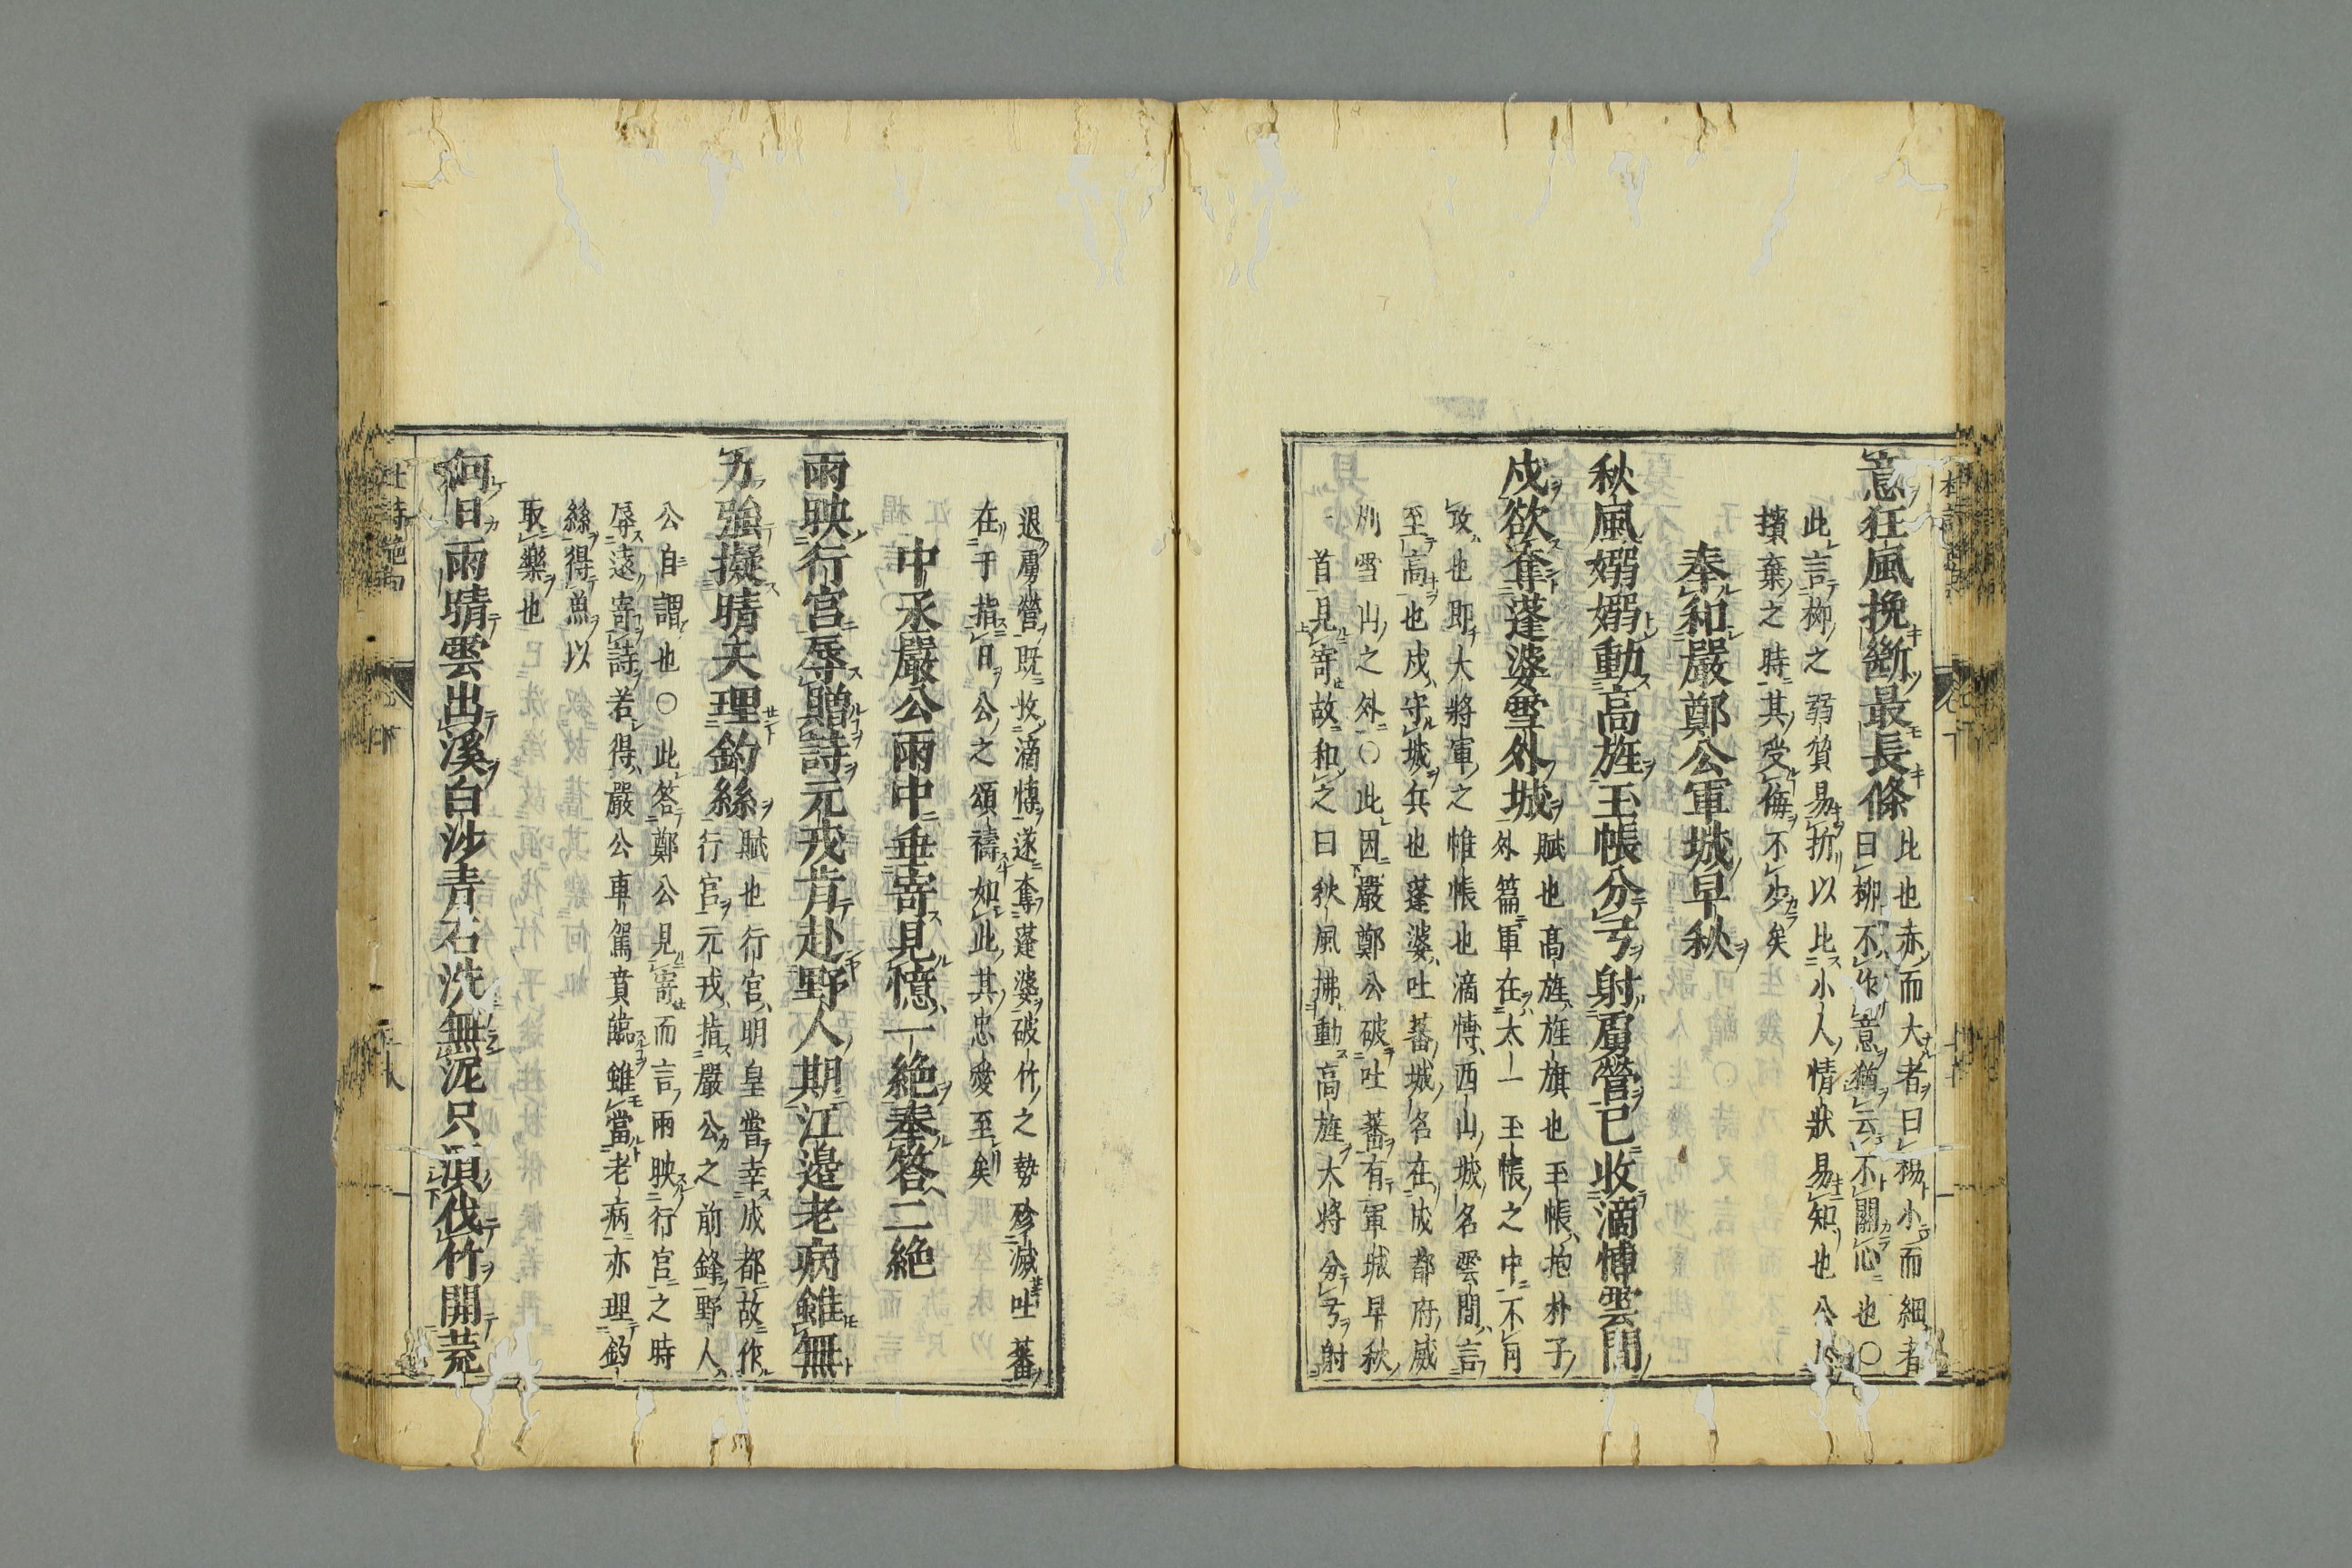 意狂風挽斷最長條
比也赤而大者曰楊小而細者
曰柳不作意猶云不關心也〇
此言柳之弱質易折以比小人情狀易知也公
擯棄之時其受侮不少矣
奉和嚴鄭公軍城早秋
秋風嫋嫋動高旌玉帳分弓射虜營已收滴博雲間
戍欲奪蓬婆雪外城
賦也高旌旌旗也玉帳抱朴子
外篇軍在太一玉帳之中不可
攻也即大將軍之帷帳也滴愽西山城名雲間言
至高也戍守城兵也蓬婆吐蕃城名在成都府威
州雪山之外〇此因嚴鄭公破吐蕃有軍城早秋
首見寄故和之曰秋風拂動高旌大將分弓射
退虜營既收滴愽遂奪蓬婆破竹之勢殄滅吐蕃
在于指日公之頌禱如此其忠愛至矣
中丞嚴公雨中垂寄見憶一絶奉答二絶
雨映行宮辱贈詩元戎肯赴野人期江邊老病雖無
力強擬晴天理釣絲
賦也行宮明皇嘗幸成都故作
行宮元戎指嚴公之前鋒野人
公自謂也〇此答鄭公見寄而言雨映行宮之時
辱遠寄詩若得嚴公車駕賁臨雖當老病亦理釣
絲得魚以
取樂也
何日雨晴雲出溪白沙青石洗無泥只須伐竹開荒
杜詩絶句